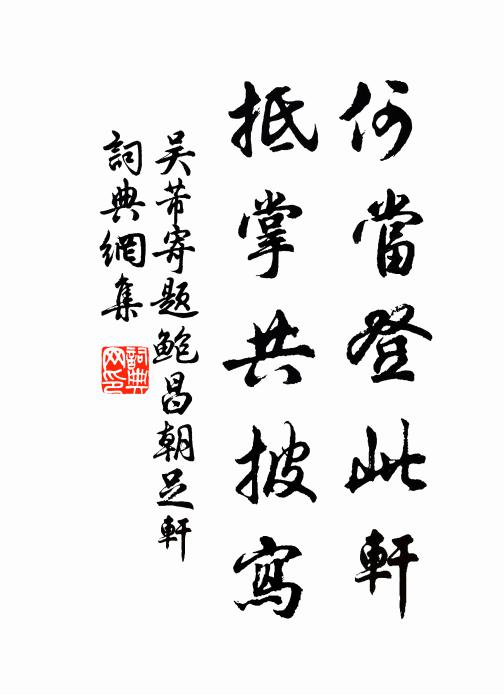 何當登此軒
抵掌共披寫
吴芾寄題鮑昌朝足軒
詞典網集
詞典網印